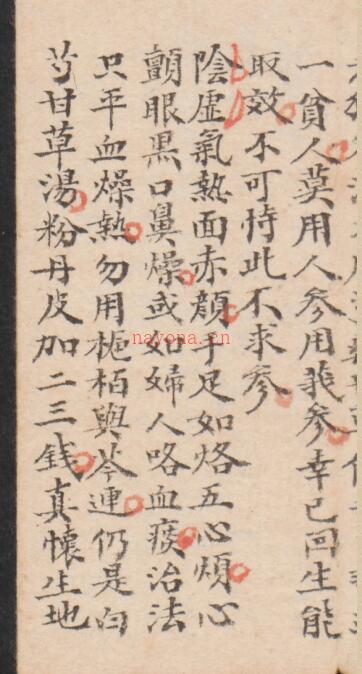 一貧人莫用人參用莪參幸已回生能
取效不可恃此不求參
陰虛氣熱面赤顏手足如烙五心煩心
顫眼黑口鼻燥或如婦人咯血痰治法
只平血燥熱勿用梔栢與芩連仍是白
芍甘草湯粉丹皮加二三錢真懷生地
nayona.cn